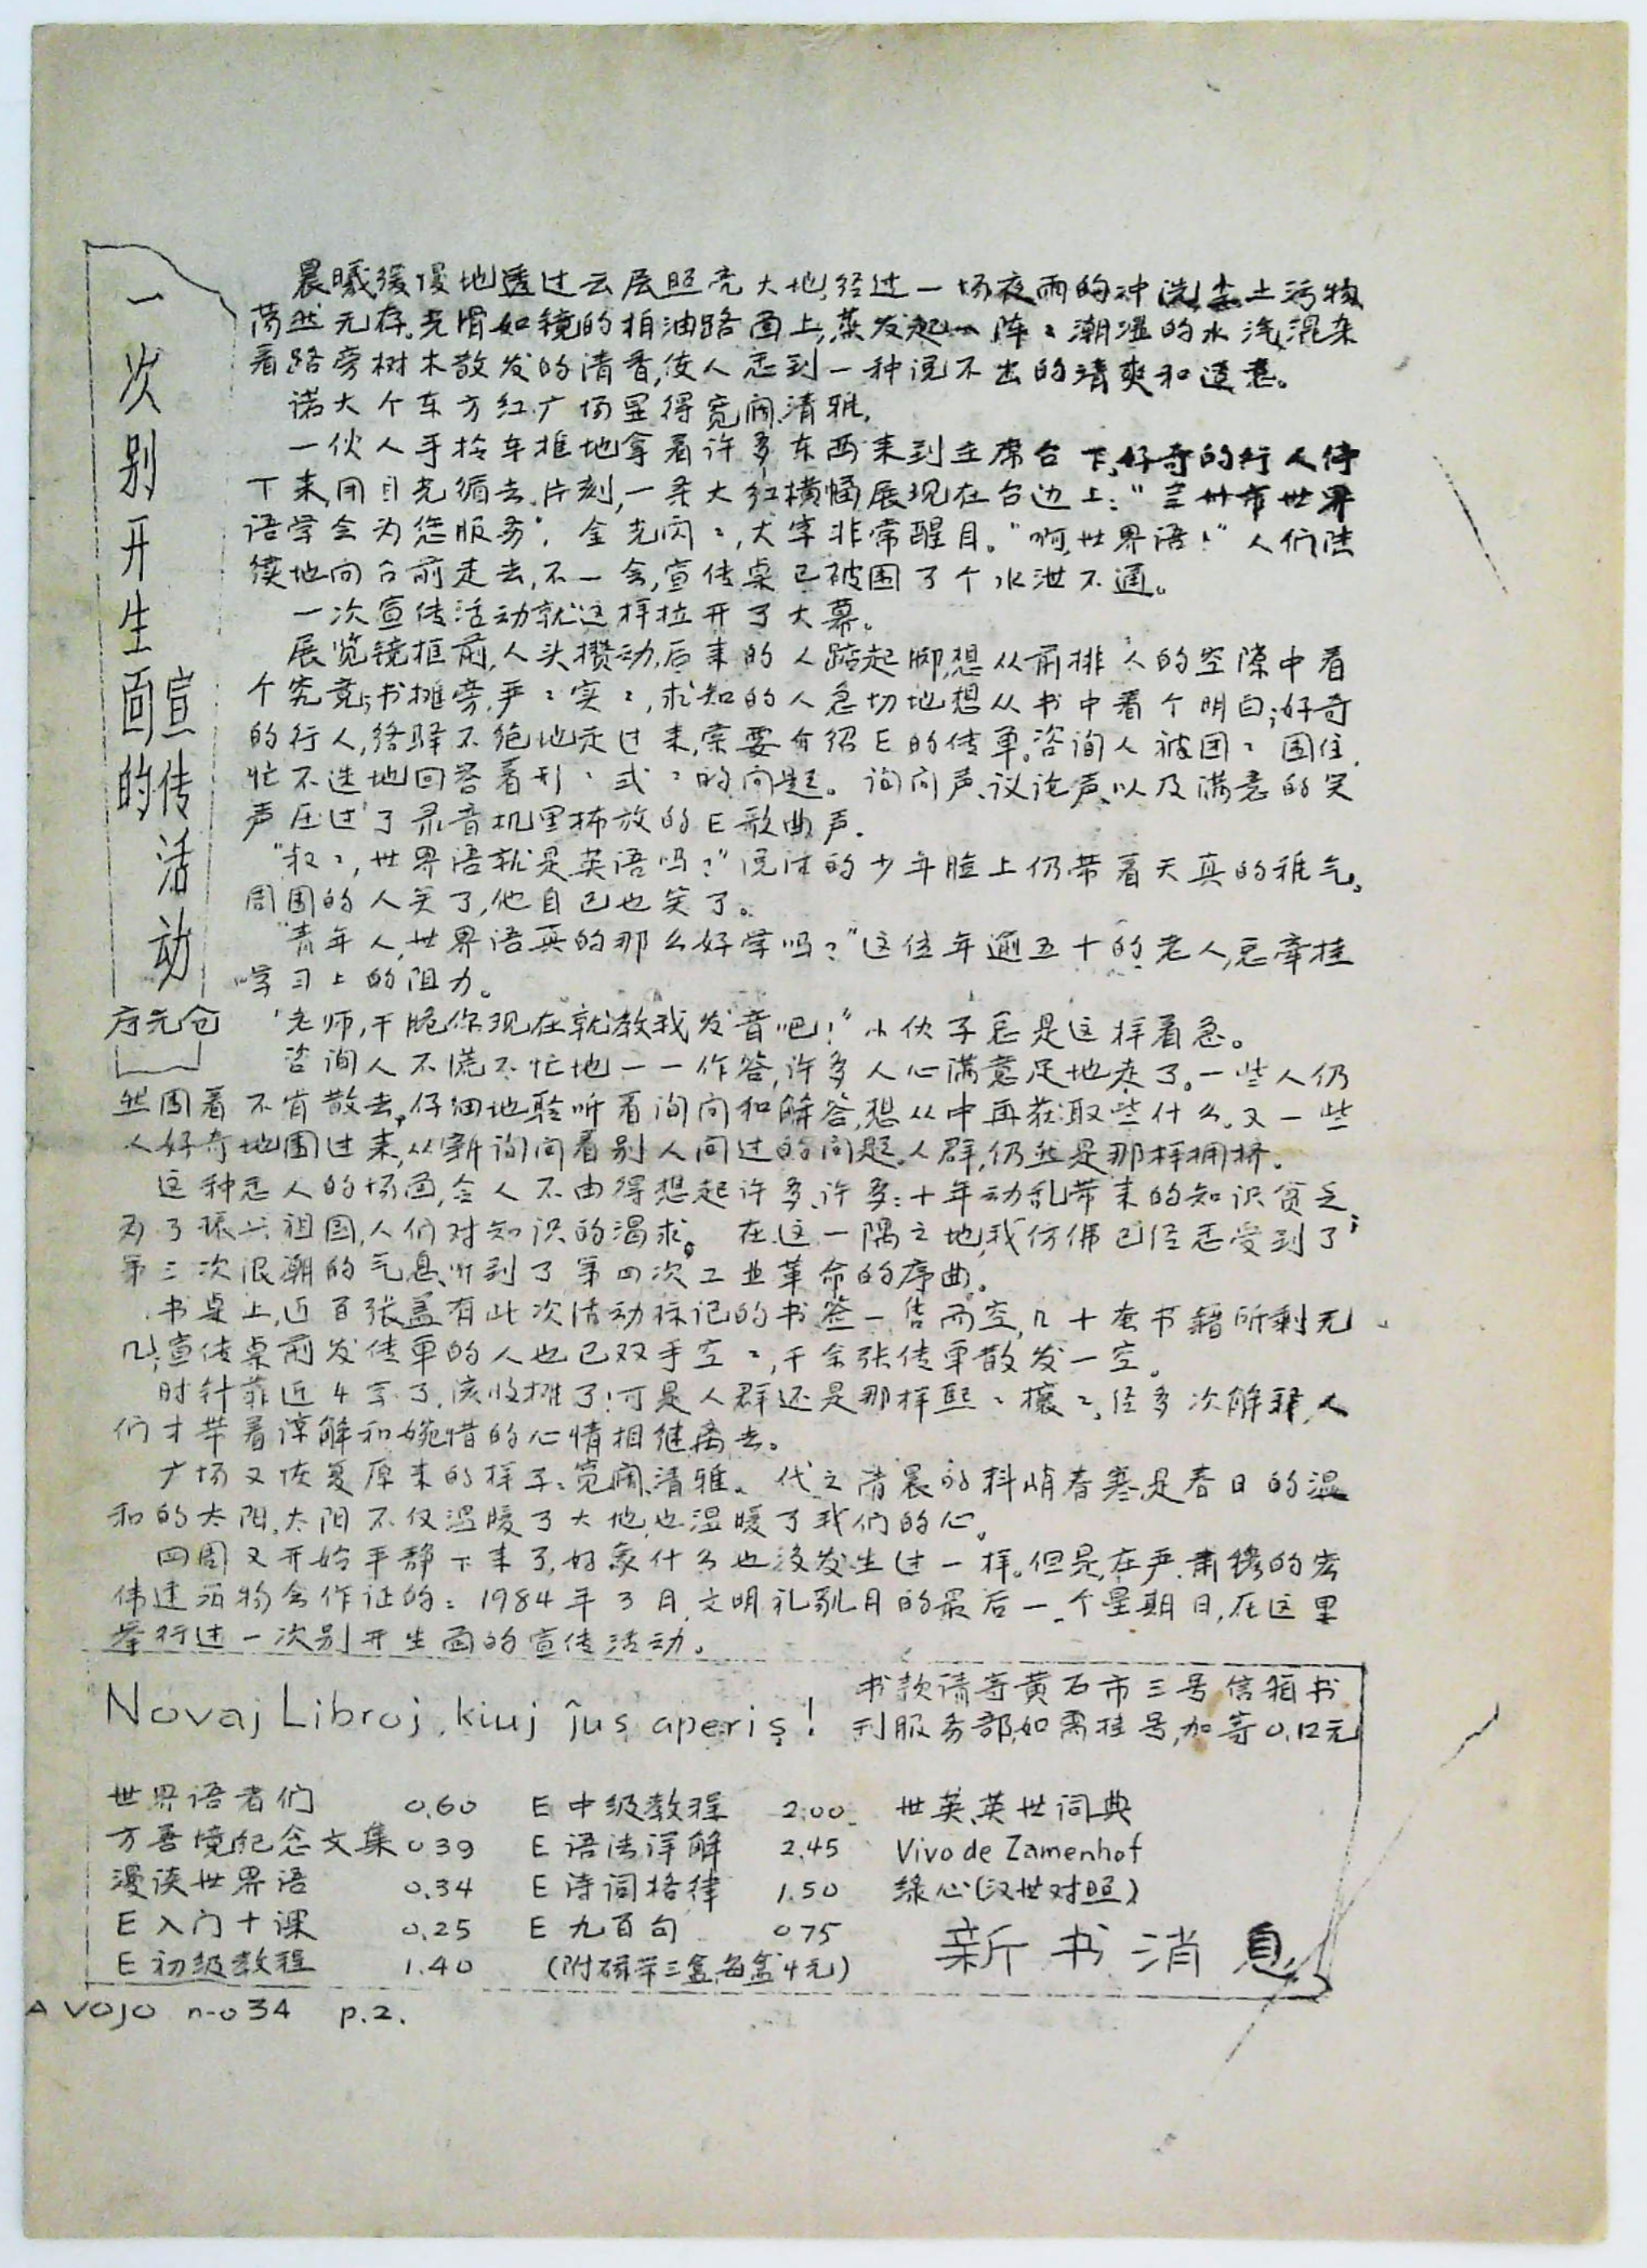 一次别开生面的
宣传活动
晨曦缓慢地透过云层照亮大地,经过一场夜雨的冲洗,尘土污物
荡然无存。光滑如镜的柏油路面上,蒸发起一阵〻潮湿的水汽,混杂
着路旁树木散发的清香,使人感到一种说不出的清爽和适意。
诺大个东方红广场显得宽阔、清雅。
一伙人手拎车推地拿着许多东西来到主席台下,好奇的行人停
下来,用目光循去。片刻,一条大红横幅展现在台边上:“兰州市世界
语学会为您服务”,金光闪〻,大字非常醒目。“啊,世界语!”人们陆
续地向台前走去,不一会,宣传桌已被围了个水泄不通。
一次宣传活动就这样拉开了大幕。
展览镜框前,人头攒动,后来的人踮起脚,想从前排人的空隙中看
个究竟;书摊旁,严〻实〻,求知的人急切地想从书中看个明白;好奇
的行人,络驿不绝地走过来,索要介绍E的传单。咨询人被团〻围住,
忙不迭地回答着形〻式〻的问题。询问声、议论声、以及满意的笑
声压过了录音机里播放的E歌曲声。
“叔〻,世界语就是英语吗?”说话的少年脸上仍带着天真的稚气。
周围的人笑了,他自己也笑了。
“青年人,世界语真的那么好学吗?”这位年逾五十的老人,总牵挂
学习上的阻力。
“老师,干脆你现在就教我发音吧!”小伙子总是这样着急。
咨询人不慌不忙地一一作答,许多人心满意足地走了。一些人仍
然围着不肯散去,仔细地聆听着询问和解答,想从中再获取些什么。又一些
人好奇地围过来,从新询问着别人问过的问题。人群,仍然是那样拥挤。
这种感人的场面,令人不由得想起许多、许多:十年动乱带来的知识贫乏;
为了振兴祖国,人们对知识的渴求。 在这一隅之地,我仿佛已经感受到了
第三次浪潮的气息、听到了第四次工业革命的序曲。
书桌上,近百张盖有此次活动标记的书签一售而空,几十套书籍所剩无
几;宣传桌前发传单的人也已双手空〻,千余张传单散发一空。
时针靠近4字了,该收摊了!可是人群还是那样熙〻攘〻,经多次解释,人
们才带着谅解和婉惜的心情相继离去。
广场又恢复原来的样子:宽阔、清雅。代之清晨的料峭春寒,是春日的温
和的太阳。太阳不仅温暖了大地,也温暖了我们的心。
四周又开始平静下来了,好象什么也没发生过一样。但是,在严肃穆的宏
伟建筑物会作证的:1984年3月,文明礼貌月的最后一个星期日,在这里
举行过一次别开生面的宣传活动。
Novaj Libroj, kiuj ĵus aperis!
书款请寄黄石市三号信箱书
刊服务部,如需挂号,加寄0.12元
世界语者们 0.60 E中级教程 2.00 世英、英世词典
方善境纪念文集 0.39 E语法详解 2.45 Vivo de Zamenhof
漫谈世界语 0.34 E诗词格律 1.50 绿心(汉世对照)
E入门十课 0.25 E九百句 0.75
E初级教程 1.40 (附磁带三盒,每盒4元)
新书消息
A VOJO n-o 34 p.2.